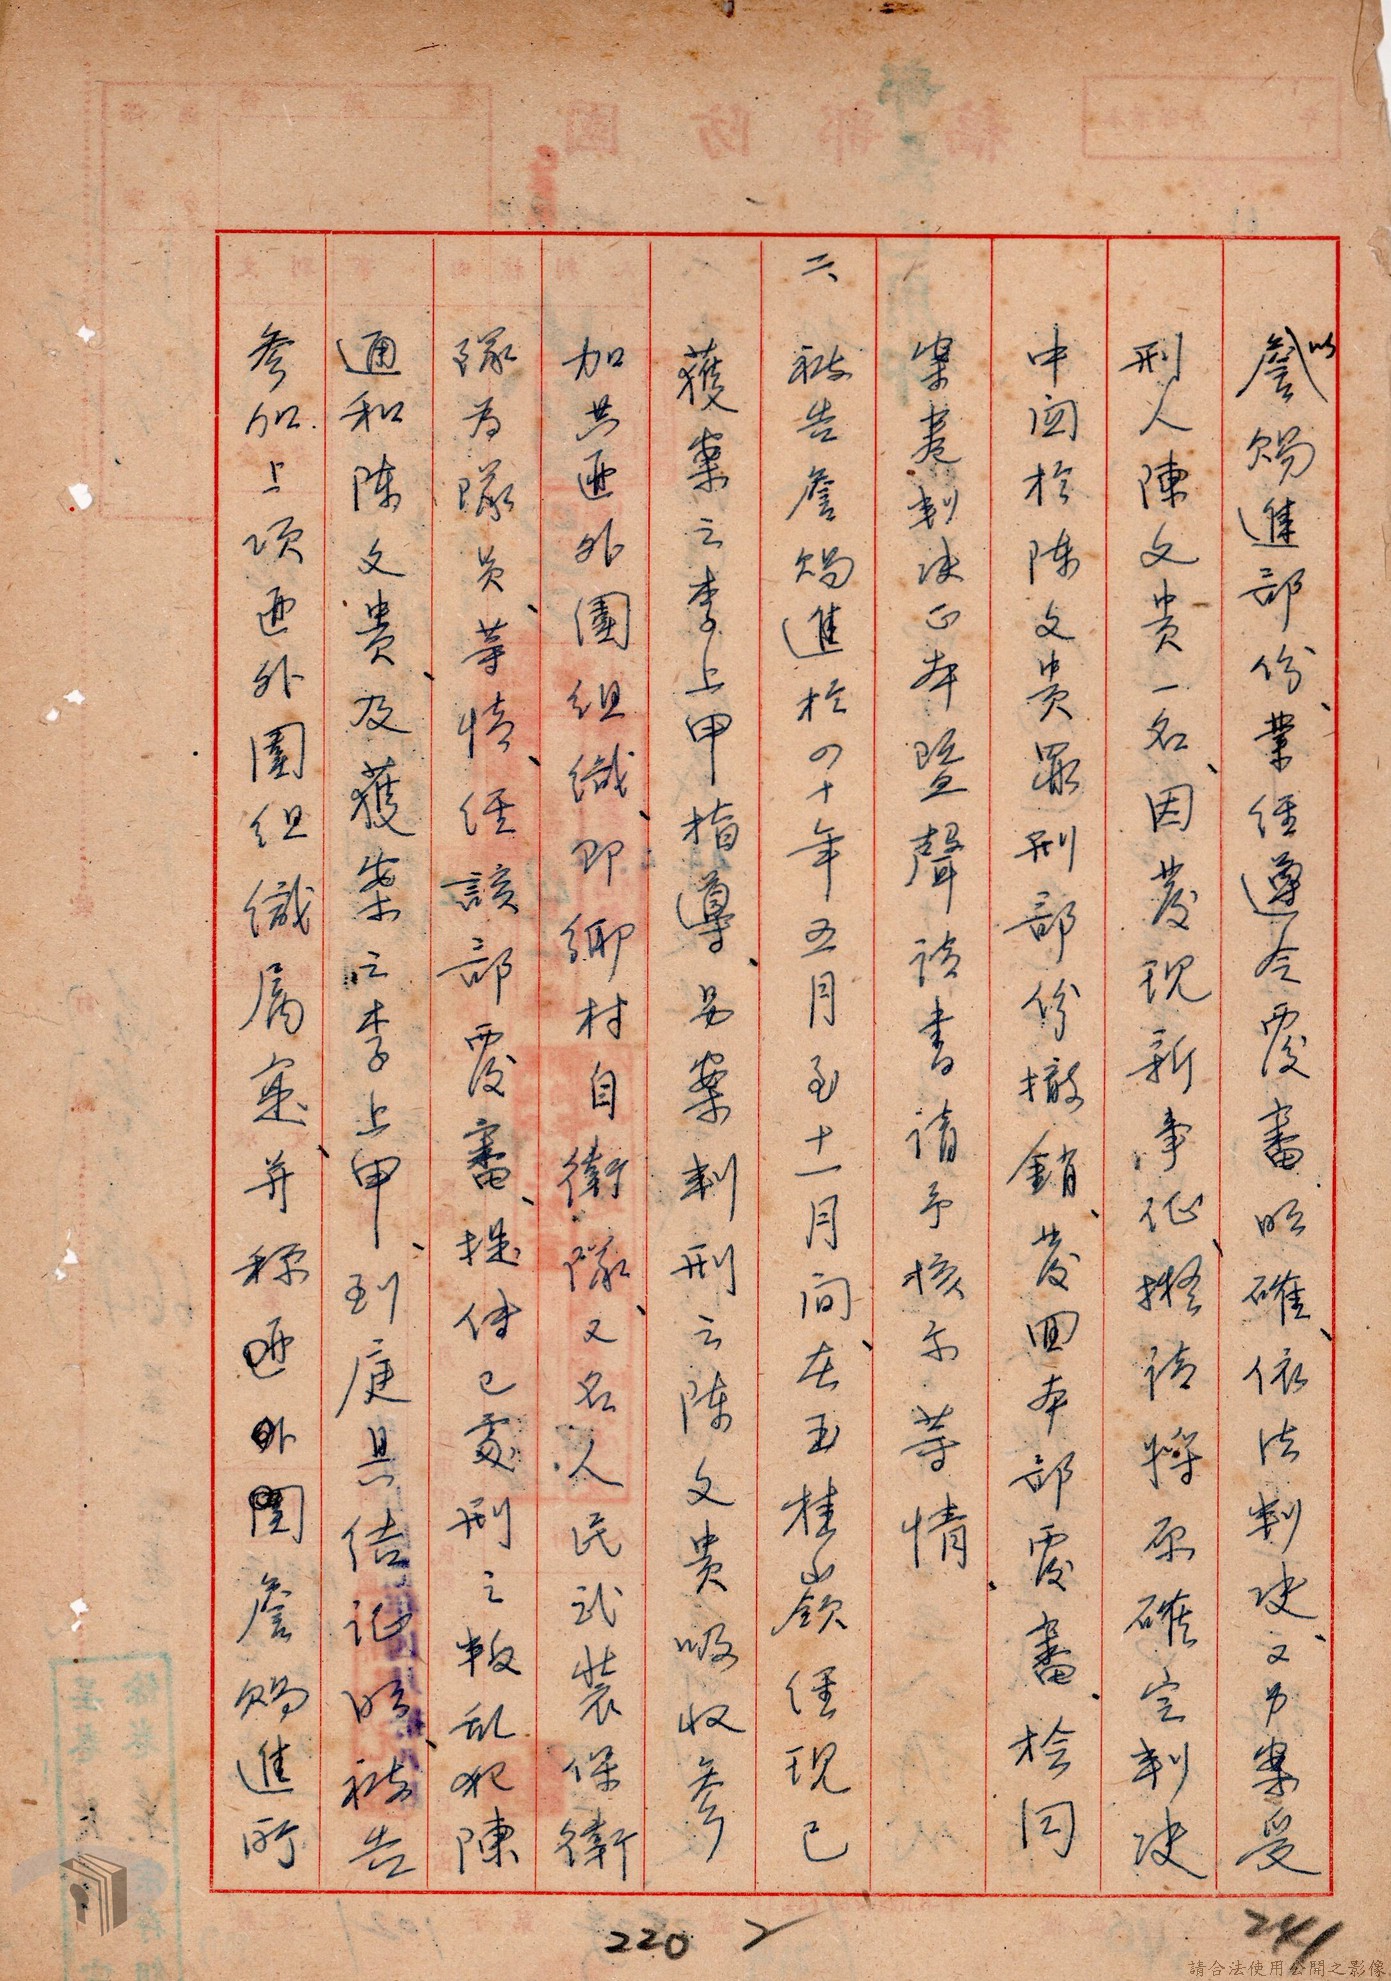 以
詹賜進部份、業經遵令覆審明確、依法判決、又另案受
刑人陳文貴一名、因發現新事証、擬請將原確定判決
中関於陳文貴罪刑部份撤銷、發回本部覆審、檢同
案卷判決正本暨聲請書請予核示等情、
二、被告詹賜進於四十年五月至十一月間、在玉桂嶺經現已
獲案之李上甲指導、另案判刑之陳文貴吸收參
加共匪外圍組織、即鄉村自衛隊、又名人民武裝保衛
隊為隊員、等情、經該部覆審、提傳已處刑之叛乱犯陳
通和陳文貴、及獲案之李上甲、到庭具結証明、被告
參加上項匪外圍組織屬寔、并称匪外圍詹賜進所
220 2
241
請合法使用公開之影像